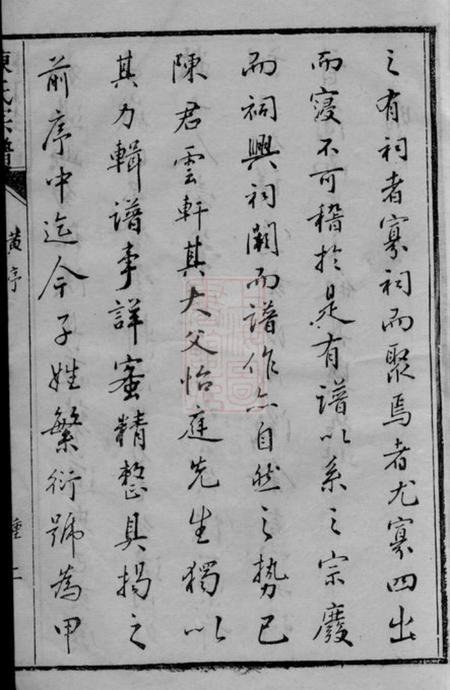 之有祠者寡祠而聚焉者尤寡四出
而寖不可稽於是有譜以系之宗廢
而祠興祠闕而譜作亦自然之勢已
陳君雲軒其大父怡庭先生獨以
其力輯譜事詳蜜精整具揭之
前序中迄今子姓繁衍號為甲
陳氏宗譜
黃序